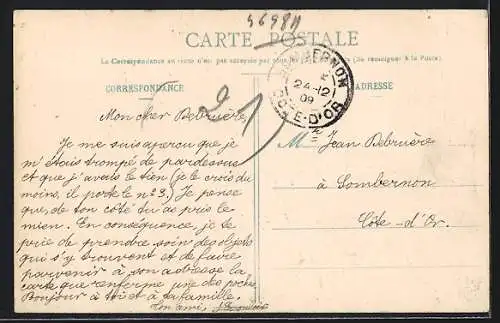 46981
CARTE POSTALE
La Correspondance au recto n'est pas acceptée par tous les pays étrangers (Se renseigner à la Poste)
CORRESPONDANCE
ADRESSE
SOMBERNON
24-12
09
CÔTE-D'OR
Mon cher Debruière,
Je me suis aperçu que je
m'étais trompé de pardessus
et que j'avais le tien (je le crois du
moins, il porte le nº 3.) Je pense
que, de ton côté tu as pris le
mien. En conséquence, je te
prie de prendre soin des objets
qui s'y trouvent et de faire
parvenir à son adresse la
carte que renferme une des poches
Bonjour à toi et à ta famille.
Ton ami,
Mr Jean Debruière
à Sombernon
Côte-d'Or.